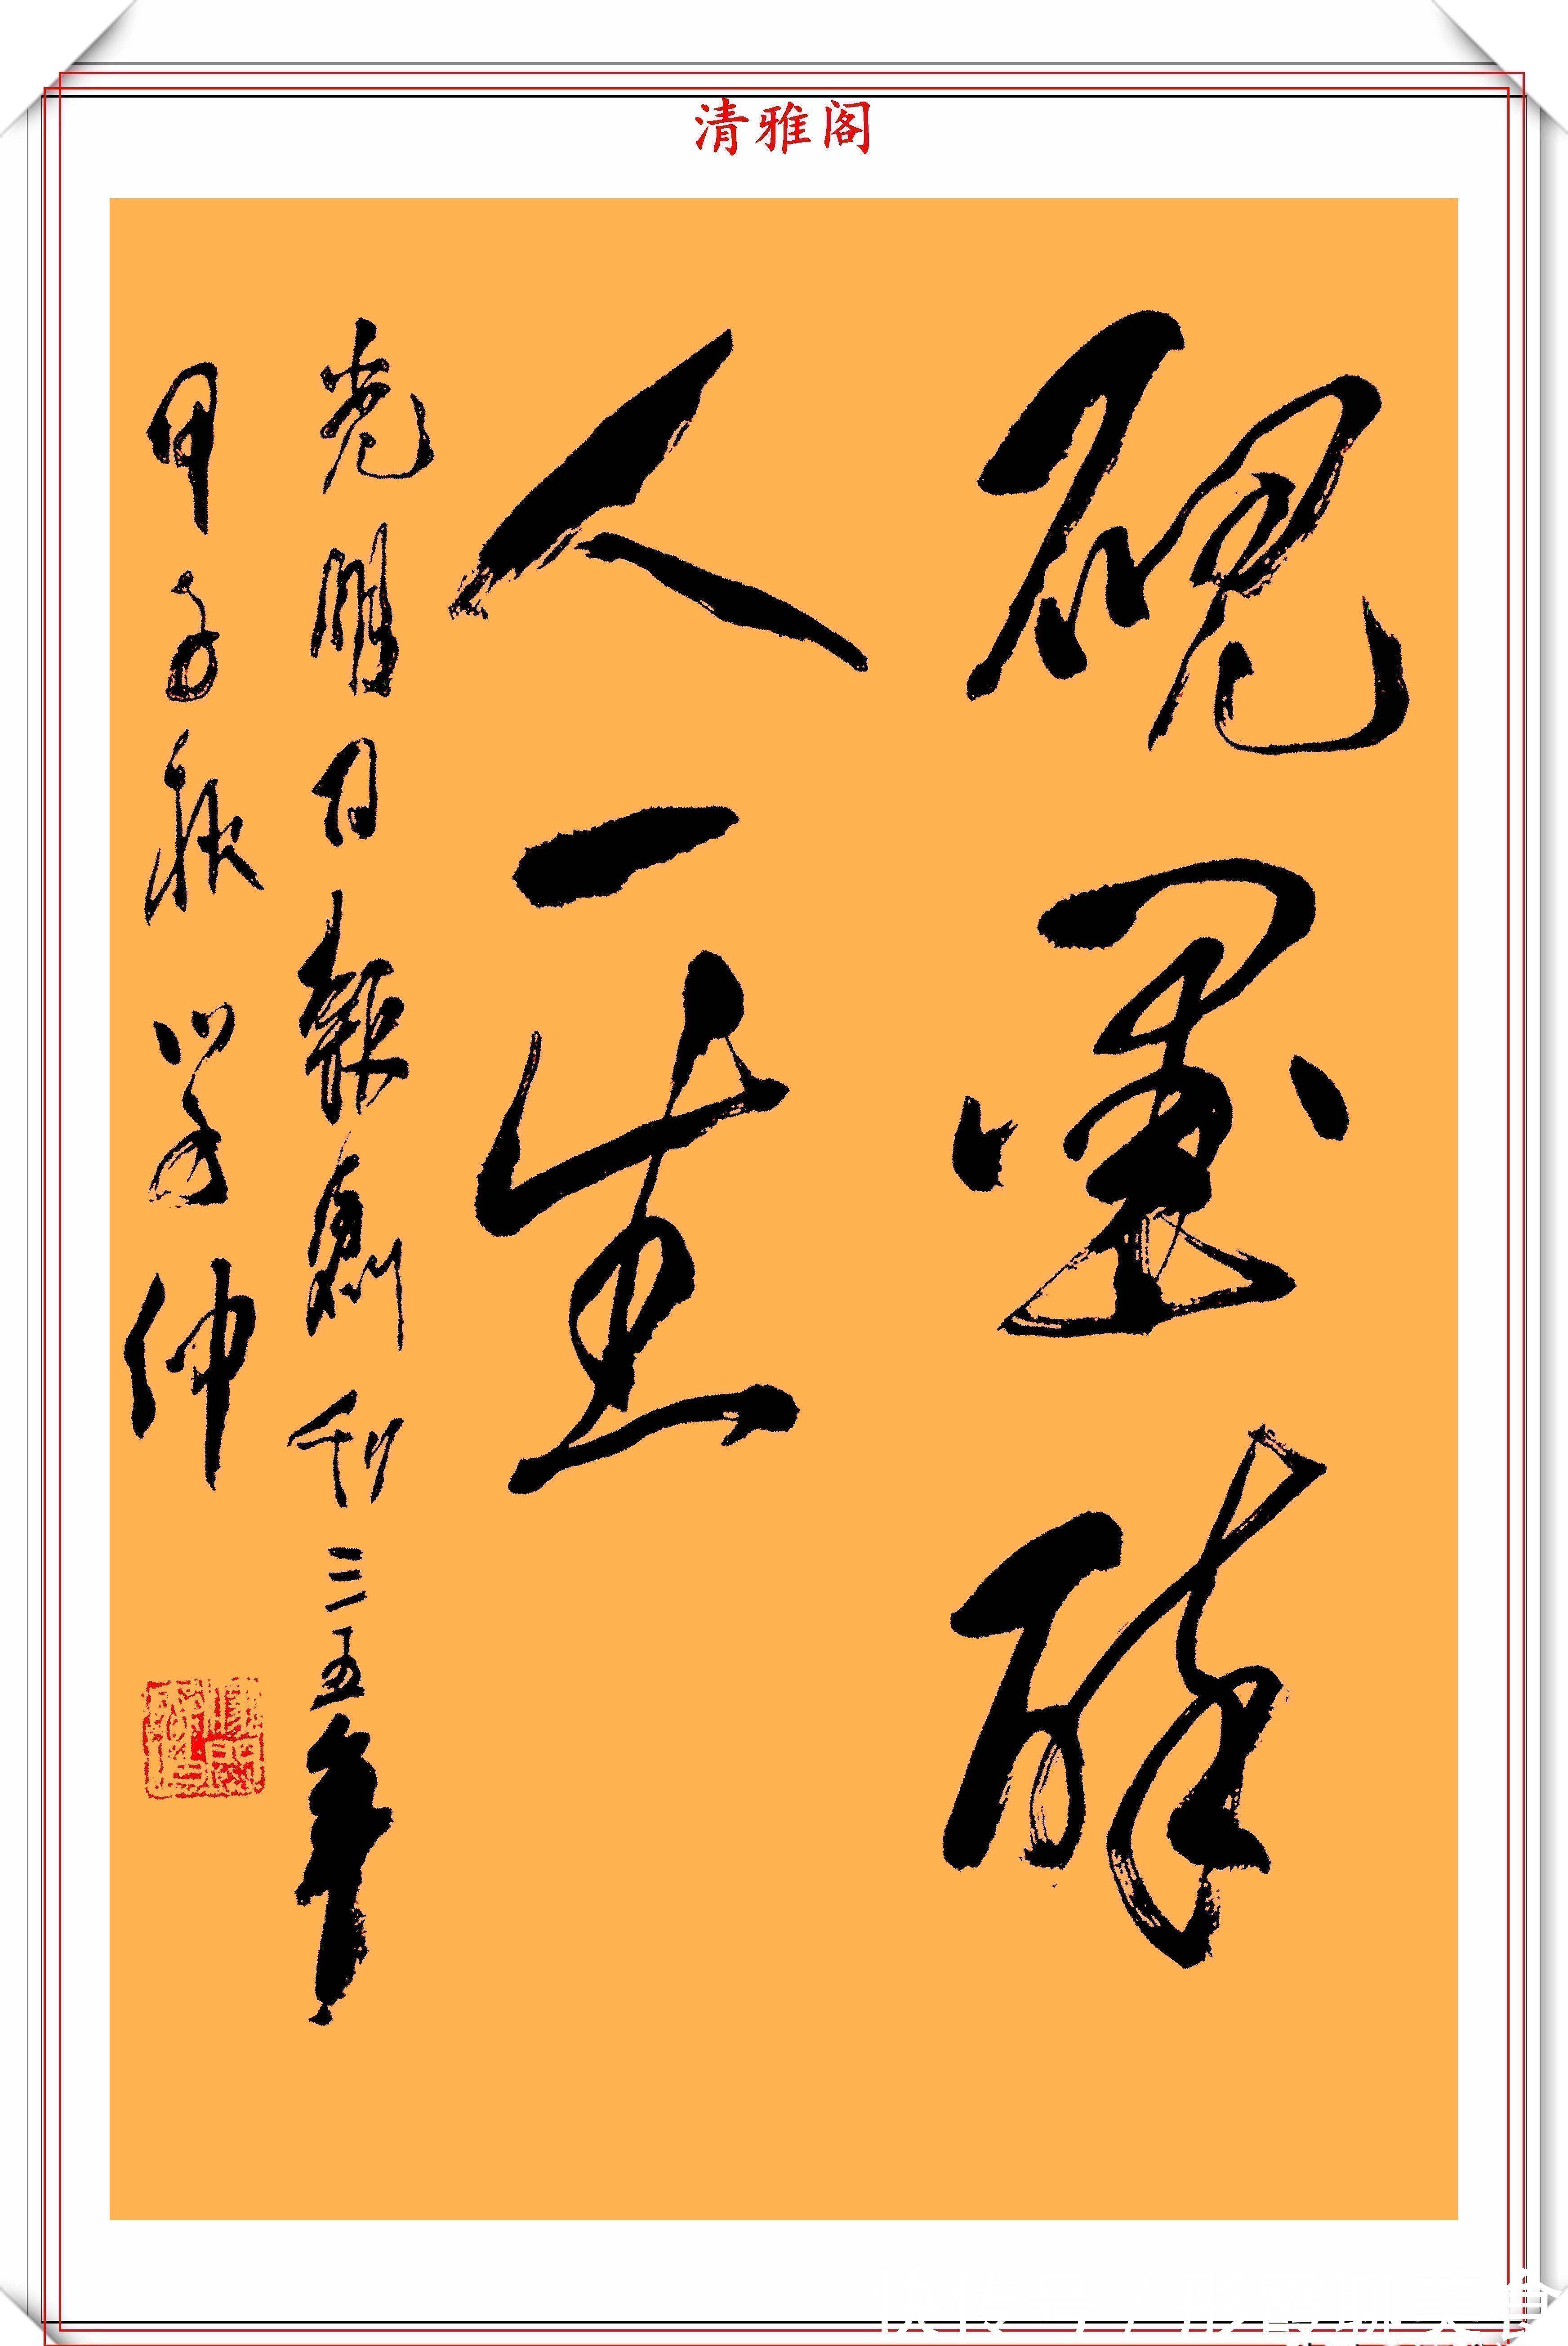 清雅阁
砚墨醉
人一生
光明日报创刊三五年
甲子秋 学仲